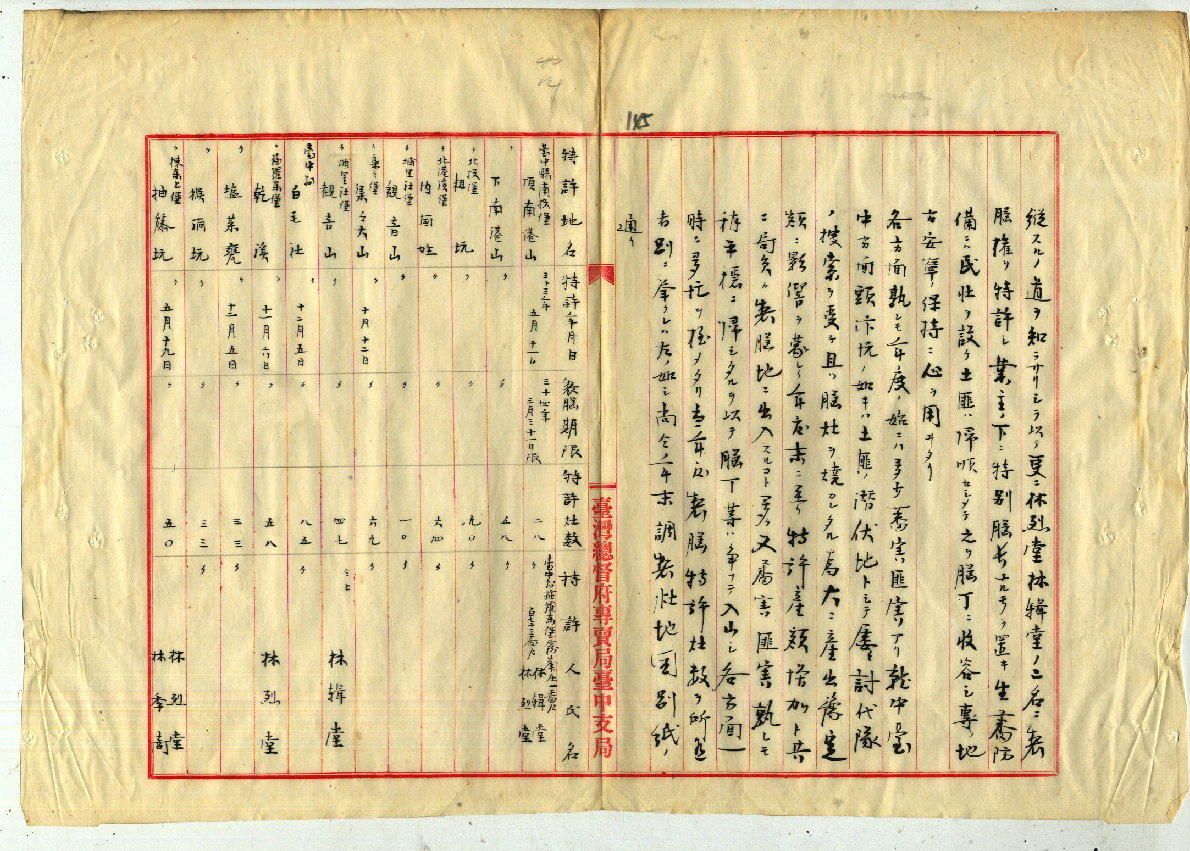 145
縦スルノ道ヲ知ラサリシヲ以テ更ニ林烈堂林輯堂ノ二名ニ製
脳権ヲ特許シ業主ノ下ニ特別脳長ナルモノヲ置キ生蕃防
備ニハ民壮ヲ設ケ土匪ハ帰順セシメテ之ヲ脳丁ニ收容シ専ラ地
方安寧ノ保持ニ心ヲ用ヰタリ
各方面孰レモ年度ノ始ニハ多少蕃害匪害アリ就中臺
中方面頭汴坑ノ如キハ土匪ノ潜伏地トシテ屡々討伐隊
ノ捜索ヲ受ケ且ハ脳灶ヲ焼カレタル為大ニ産出豫定
額ニ影響ヲ蒙レリ年度末ニ至リ特許産額増加ト共
ニ局員ノ製脳地ニ出入スルコト多ク又蕃害匪害孰レモ
稍平穏ニ帰シタルヲ以テ脳丁等ハ争フテ入山シ各方面一
時ニ多忙ヲ極メタリ本年度製脳特許灶数ヲ所在
者別ニ挙クレハ左ノ如シ尚今年末調製灶地図別紙ノ
通リ
臺灣總督府專賣局臺中支局
特許地名 特許年月日 製脳期限 特許灶数 特許人氏名
臺中縣南投堡 頂南港山 三十三年 五月十一日 三十四年 三月三十一日限 二八 林輯堂 林烈堂
〃 下南港山 〃 〃 五八 〃
〃北投堡 坑 〃 〃 九〇 〃
〃北港溪堡 内国姓 〃 〃 六四 〃
〃埔里社堡 観音山 〃 〃 一〇 〃
〃集々堡 集々大山 十月十二日 〃 六九 〃
〃埔里社堡 観音山 〃 〃 四七 仝上 林輯堂
臺中 白毛社 十二月五日 〃 八五 〃
〃 乾溪 十一月六日 〃 五八 〃 林烈堂
〃 十二月五日 〃 三三 〃
〃 坑 〃 〃 三三 〃
〃揀東上堡 抽藤坑 五月十九日 〃 五〇 林烈堂 林季商